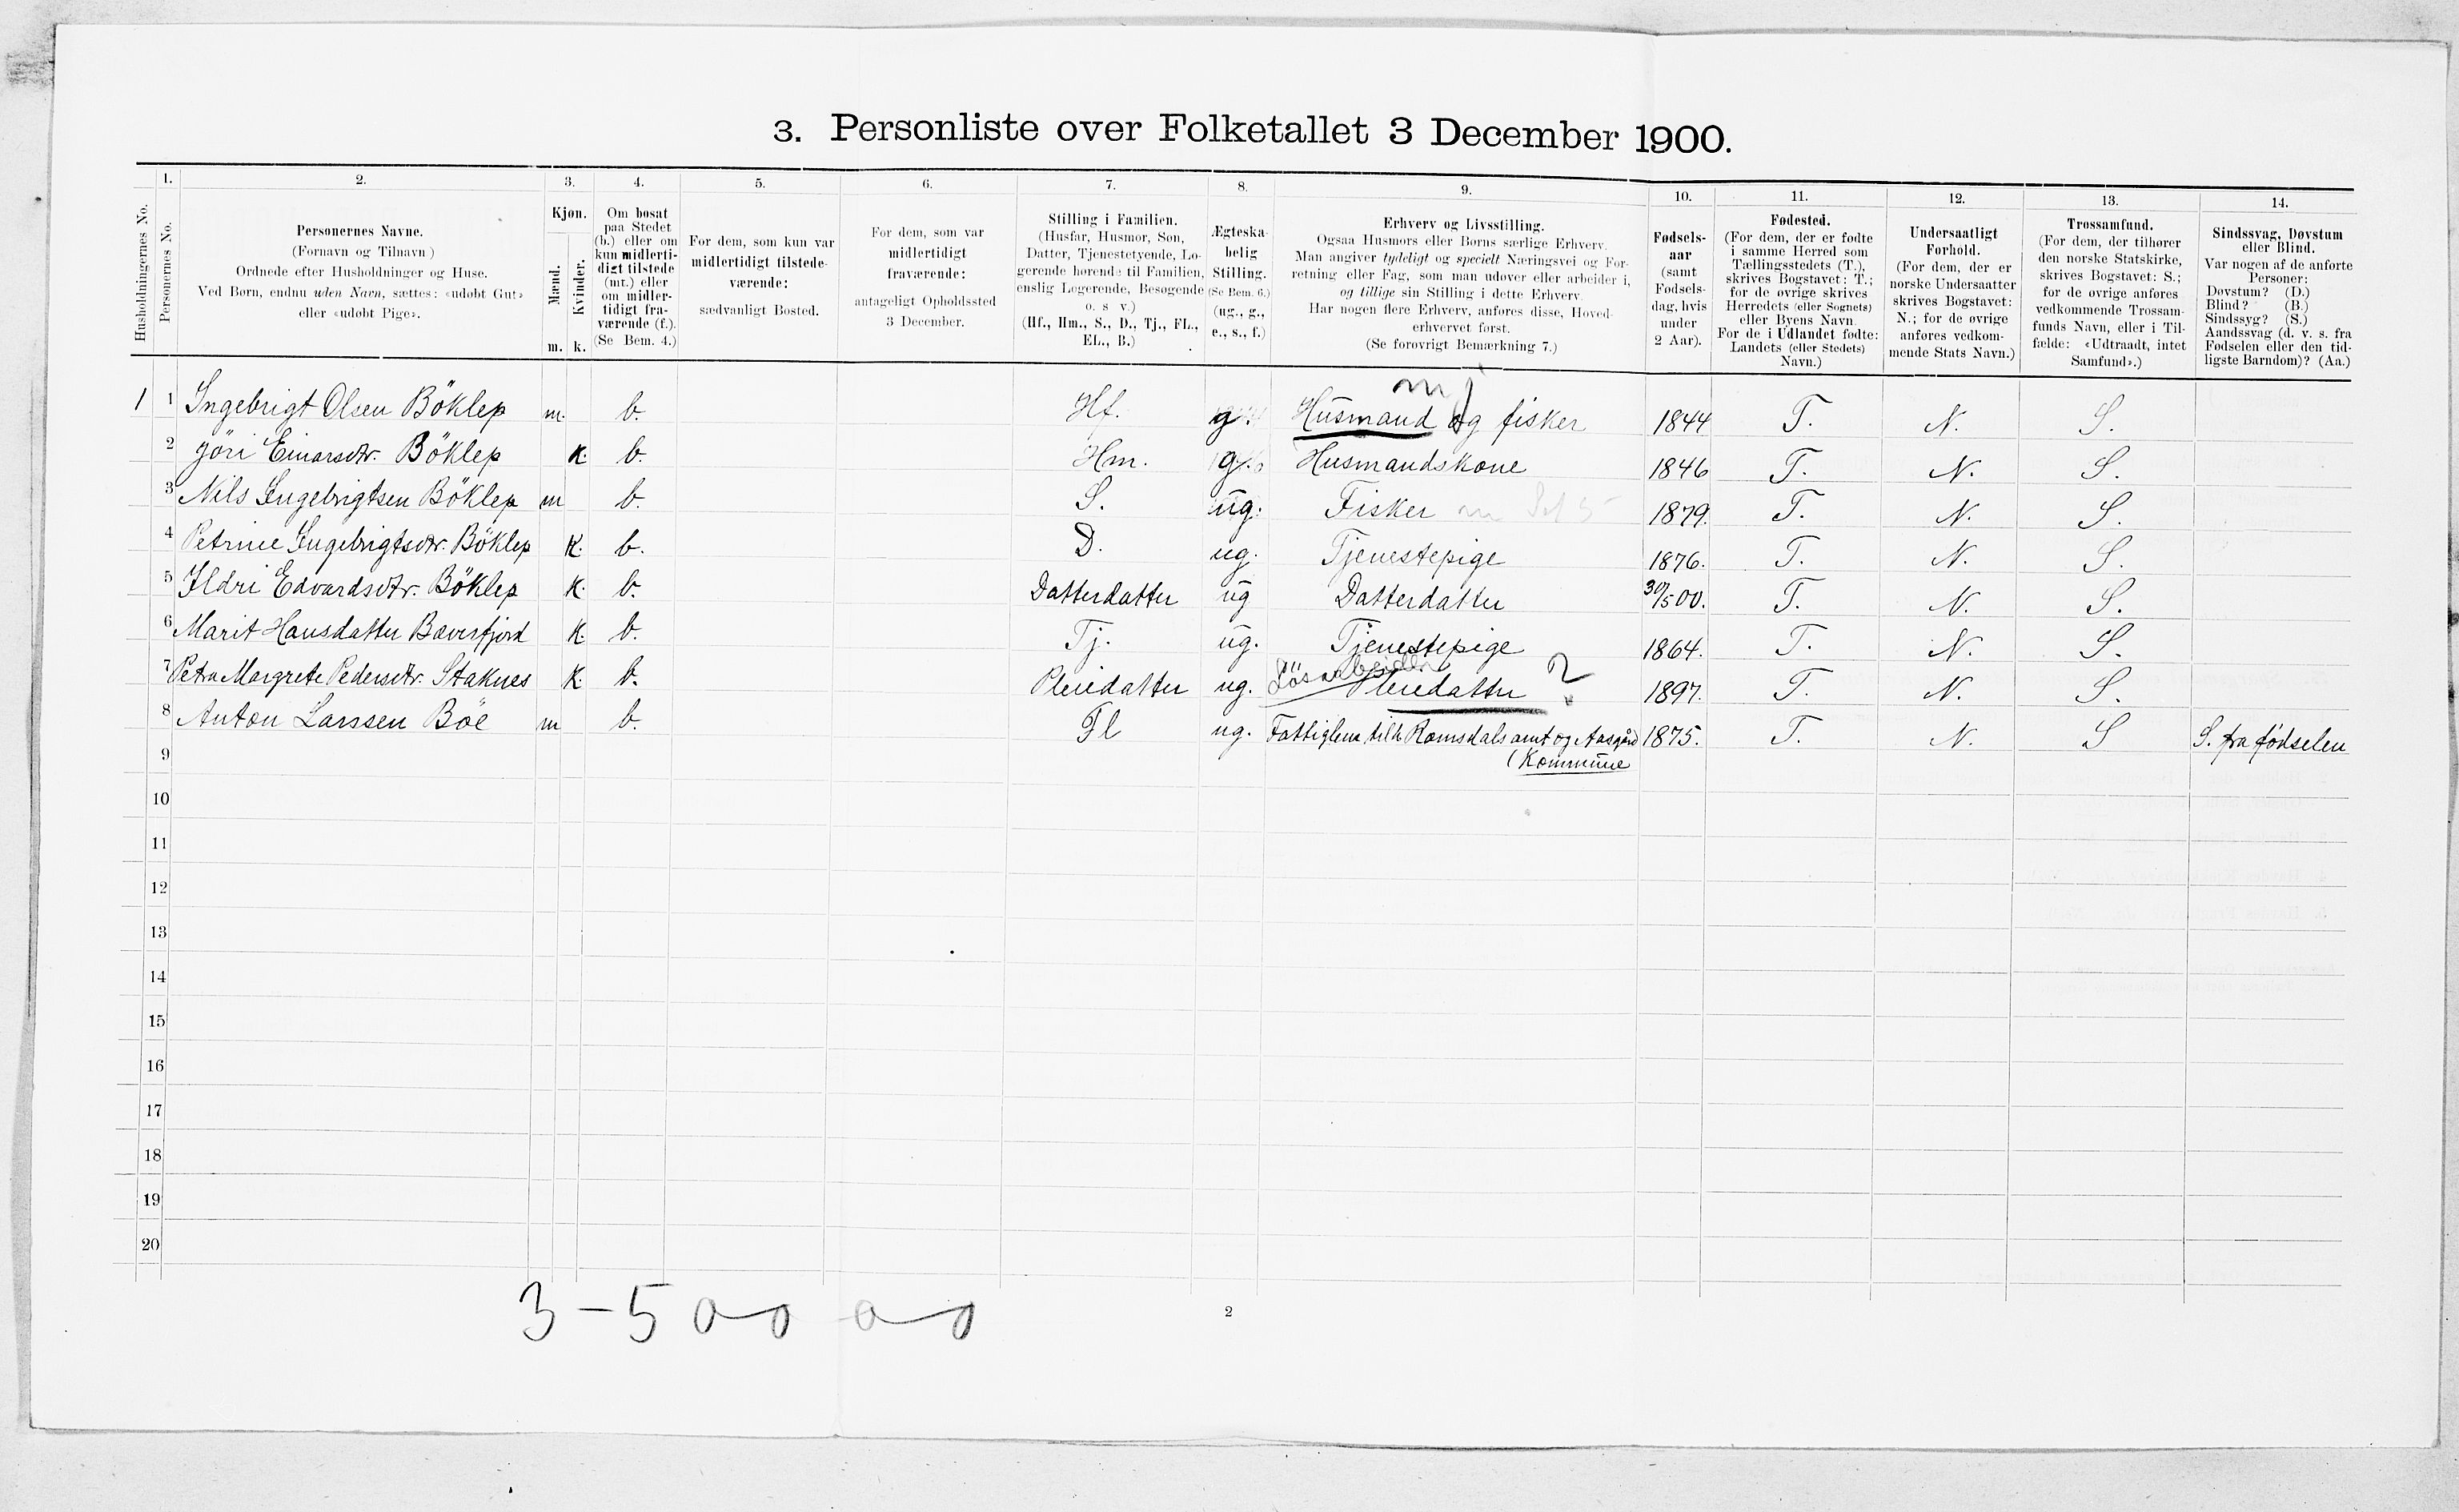 3. Personliste over Folketallet 3 December 1900.
1. 2. 3. 4. 5. 6. 7. 8. 9. 10. 11. 12. 13. 14.
Husholdningernes No.
Personernes No.
Personernes Navne.
(Fornavn og Tilnavn)
Ordnede efter Husholdninger og Huse.
Ved Børn, endnu uden Navn, sættes: «udøbt Gut»
eller «udøbt Pige».
Kjøn.
Mænd.
Kvinder.
m. k.
Om bosat
paa Stedet
(b.) eller om
kun midlerti-
digt tilstede
(mt.) eller
om midler-
tidigt fra-
værende (f.).
(Se Bem. 4.)
For dem, som kun var
midlertidigt tilstede-
værende:
sædvanligt Bosted.
For dem, som var
midlertidigt
fraværende:
antageligt Opholdssted
3 December.
Stilling i Familien.
(Husfar, Husmor, Søn,
Datter, Tjenestetyende, Lo-
gerende hørende til Familien,
enslig Logerende, Besøgende
o. s v.)
(Hf., Hm., S., D., Tj., FL.,
EL., B.)
Ægteska-
belig
Stilling.
(Se Bem. 6.)
(ug., g.,
e., s., f.)
Erhverv og Livsstilling.
Ogsaa Husmors eller Børns særlige Erhverv.
Man angiver tydeligt og specielt Næringsvei og For-
retning eller Fag, som man udøver eller arbeider i,
og tillige sin Stilling i dette Erhverv.
Har nogen flere Erhverv, anføres disse, Hoved-
erhvervet først.
(Se forøvrigt Bemærkning 7.)
Fødsels-
aar
(samt
Fødsels-
dag, hvis
under
2 Aar).
Fødested.
(For dem, der er fødte
i samme Herred som
Tællingsstedets (T.),
skrives Bogstavet: T.;
for de øvrige skrives
Herredets (eller Sognets)
eller Byens Navn.
For de i Udlandet fødte:
Landets (eller Stedets)
Navn.)
Undersaatligt
Forhold.
(For dem, der er
norske Undersaatter
skrives Bogstavet:
N.; for de øvrige
anføres vedkom-
mende Stats Navn.)
Trossamfund.
(For dem, der tilhører
den norske Statskirke,
skrives Bogstavet: S.;
for de øvrige anføres
vedkommende Trossam-
funds Navn, eller i Til-
fælde: «Udtraadt, intet
Samfund».)
Sindssvag, Døvstum
eller Blind.
Var nogen af de anførte
Personer:
Døvstum? (D.)
Blind? (B.)
Sindssyg? (S.)
Aandssvag (d. v. s. fra
Fødselen eller den tid-
ligste Barndom)? (Aa.)
1 1 Ingebrigt Olsen Böklep m. b. Hf. g. Husmand og fisker 1844 T. N. S.
2 Jöri Einarsdtr. Böklep K. b. Hm. g. Husmandskone 1846 T. N. S.
3 Nils Ingebrigtsen Böklep m b. S. ug. Fisker 1879. T. N. S.
4 Petrine Ingebrigtsdtr. Böklep K. b. D. ug. Tjenestepige 1876. T. N. S.
5 Ildri Edvardsdtr. Böklep K. b. Datterdatter ug Datterdatter 30/5 00. T. N. S.
6 Marit Hansdatter Bæverfjord K. b. Tj. ug. Tjenestepige 1864. T. N. S.
Lösarbeider
7 Petra Margrete Pedersdtr. Staknes K b. Pleiedatter ug. Pleiedatter ? 1897. T. N. S.
8 Anton Larssen Böe m b. Fl ug. Fattiglem, tilh. Romsdals amt og Aasgård 1875. T. N. S S. fra fødselen
9 (Kommune
10
11
12
13
14
15
16
17
18
19
20
3 – 5 0–0 0–0
2